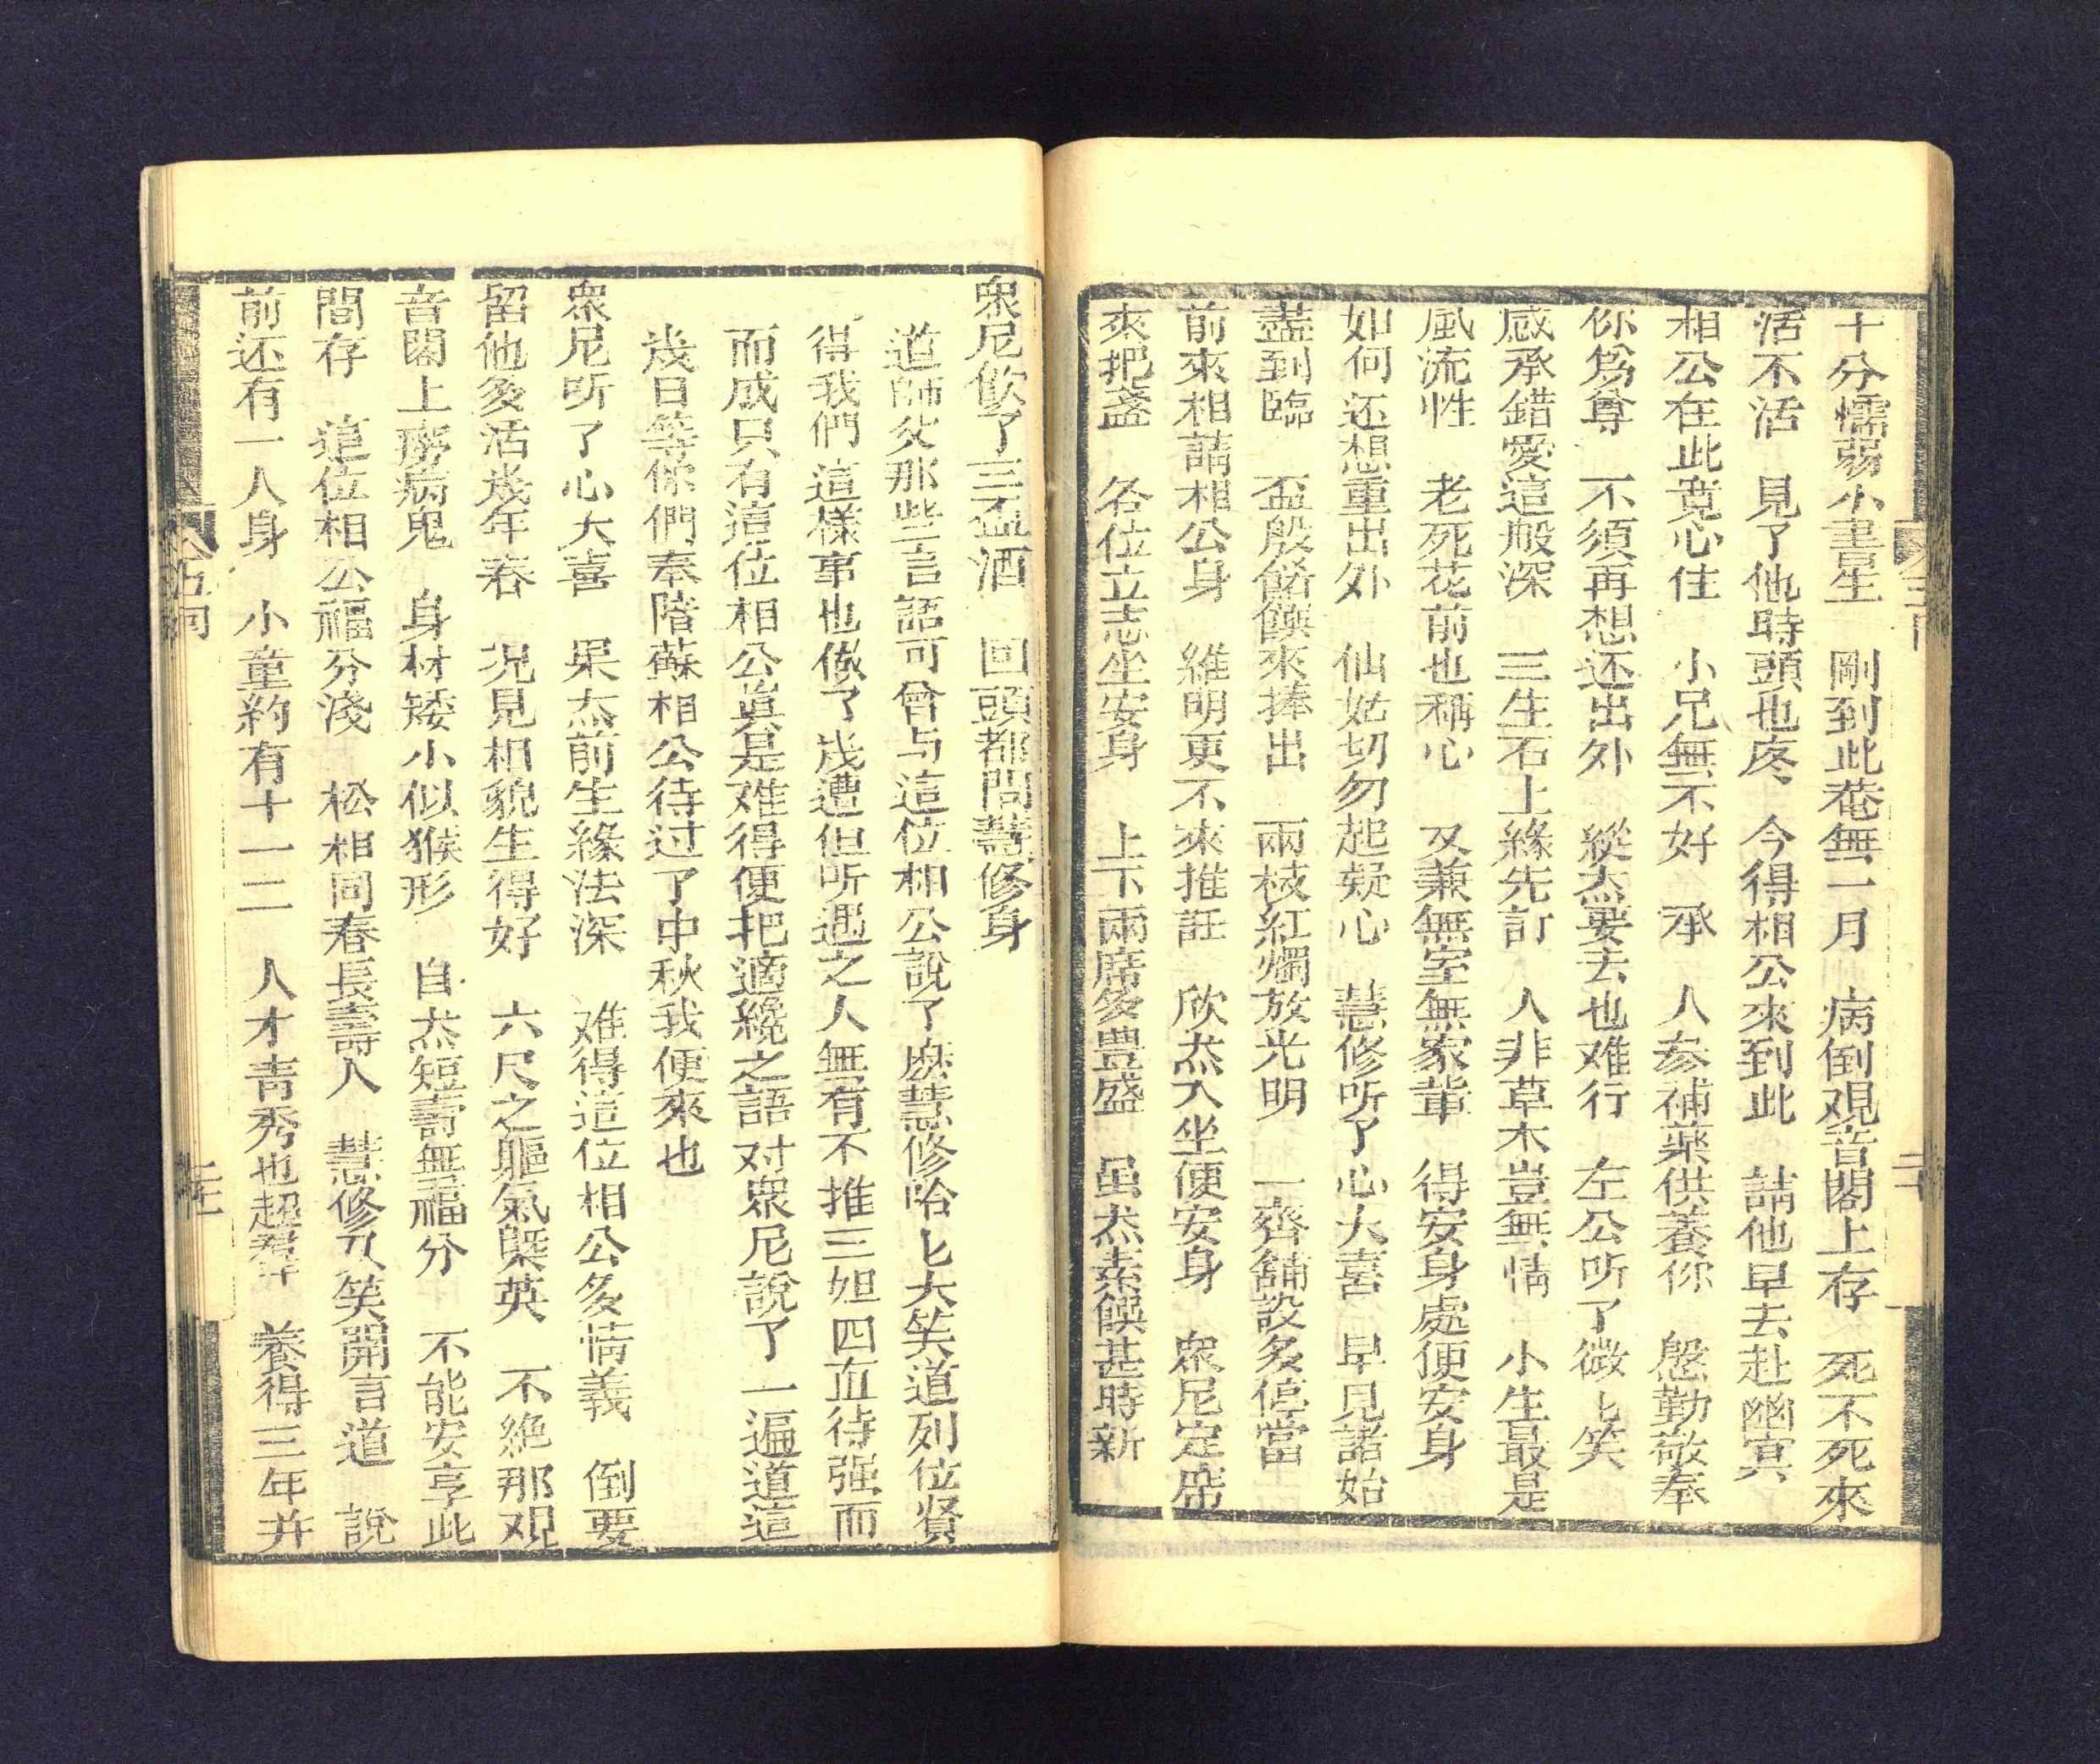 十分懦弱小書生　剛到此菴無一月　病倒观音閣上存　死不死來
活不活　見了他時頭也疼　今得相公來到此　請他早去赴幽冥
相公在此寬心住　小兄無不好　承　人参補藥供養你　慇勤敬奉
你爲尊　不須再想还出外　縱杰要去也难行　左公听了微匕笑
感承錯愛這般深　三生石上緣先訂　人非草木豈無情　小生最是
風流性　老死花前也稱心　又兼無室無家輩　得安身處便安身
如何还想重出外　仙姑切勿起疑心　慧修听了心大喜　早見諸始
盡到臨　盃殽餚饌來捧出　兩枝紅燭放光明　一齊舗設多停當
前來相請相公身　維明更不來推託　欣杰入坐便安身　眾尼定席
來把盞　各位立志坐安身　上下兩席多豊盛　虽杰素饌甚時新
眾尼飲了三盃酒　回頭都問慧修身
道師父那些言語可曾与這位相公說了麽慧修哈匕大笑道列位賢
得我們這樣事也做了㡬遭但听遇之人無有不推三妲四直待强而
而成只有這位相公真是难得便把適纔之語对眾尼說了一遍道這
㡬日等你們奉陪蘇相公待过了中秋我便來也
眾尼听了心大喜　果杰前生緣法深　难得這位相公多情義　倒要
留他多活㡬年春　况見相貌生得好　六尺之軀氣槩英　不絶那观
音閣上癆病鬼　身材矮小似猴形　自杰短壽無福分　不能安享此
間存　這位相公福分淺　松相同春長壽人　慧修又笑開言道　說
前还有一人身　小童約有十一二　人才青秀也超羣　養得三年并